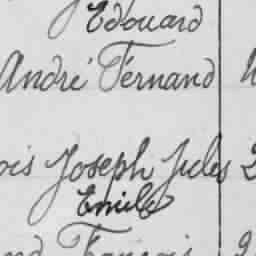 Edouard
André Fernand
ois Joseph Jules 2
Emile
nd François 2